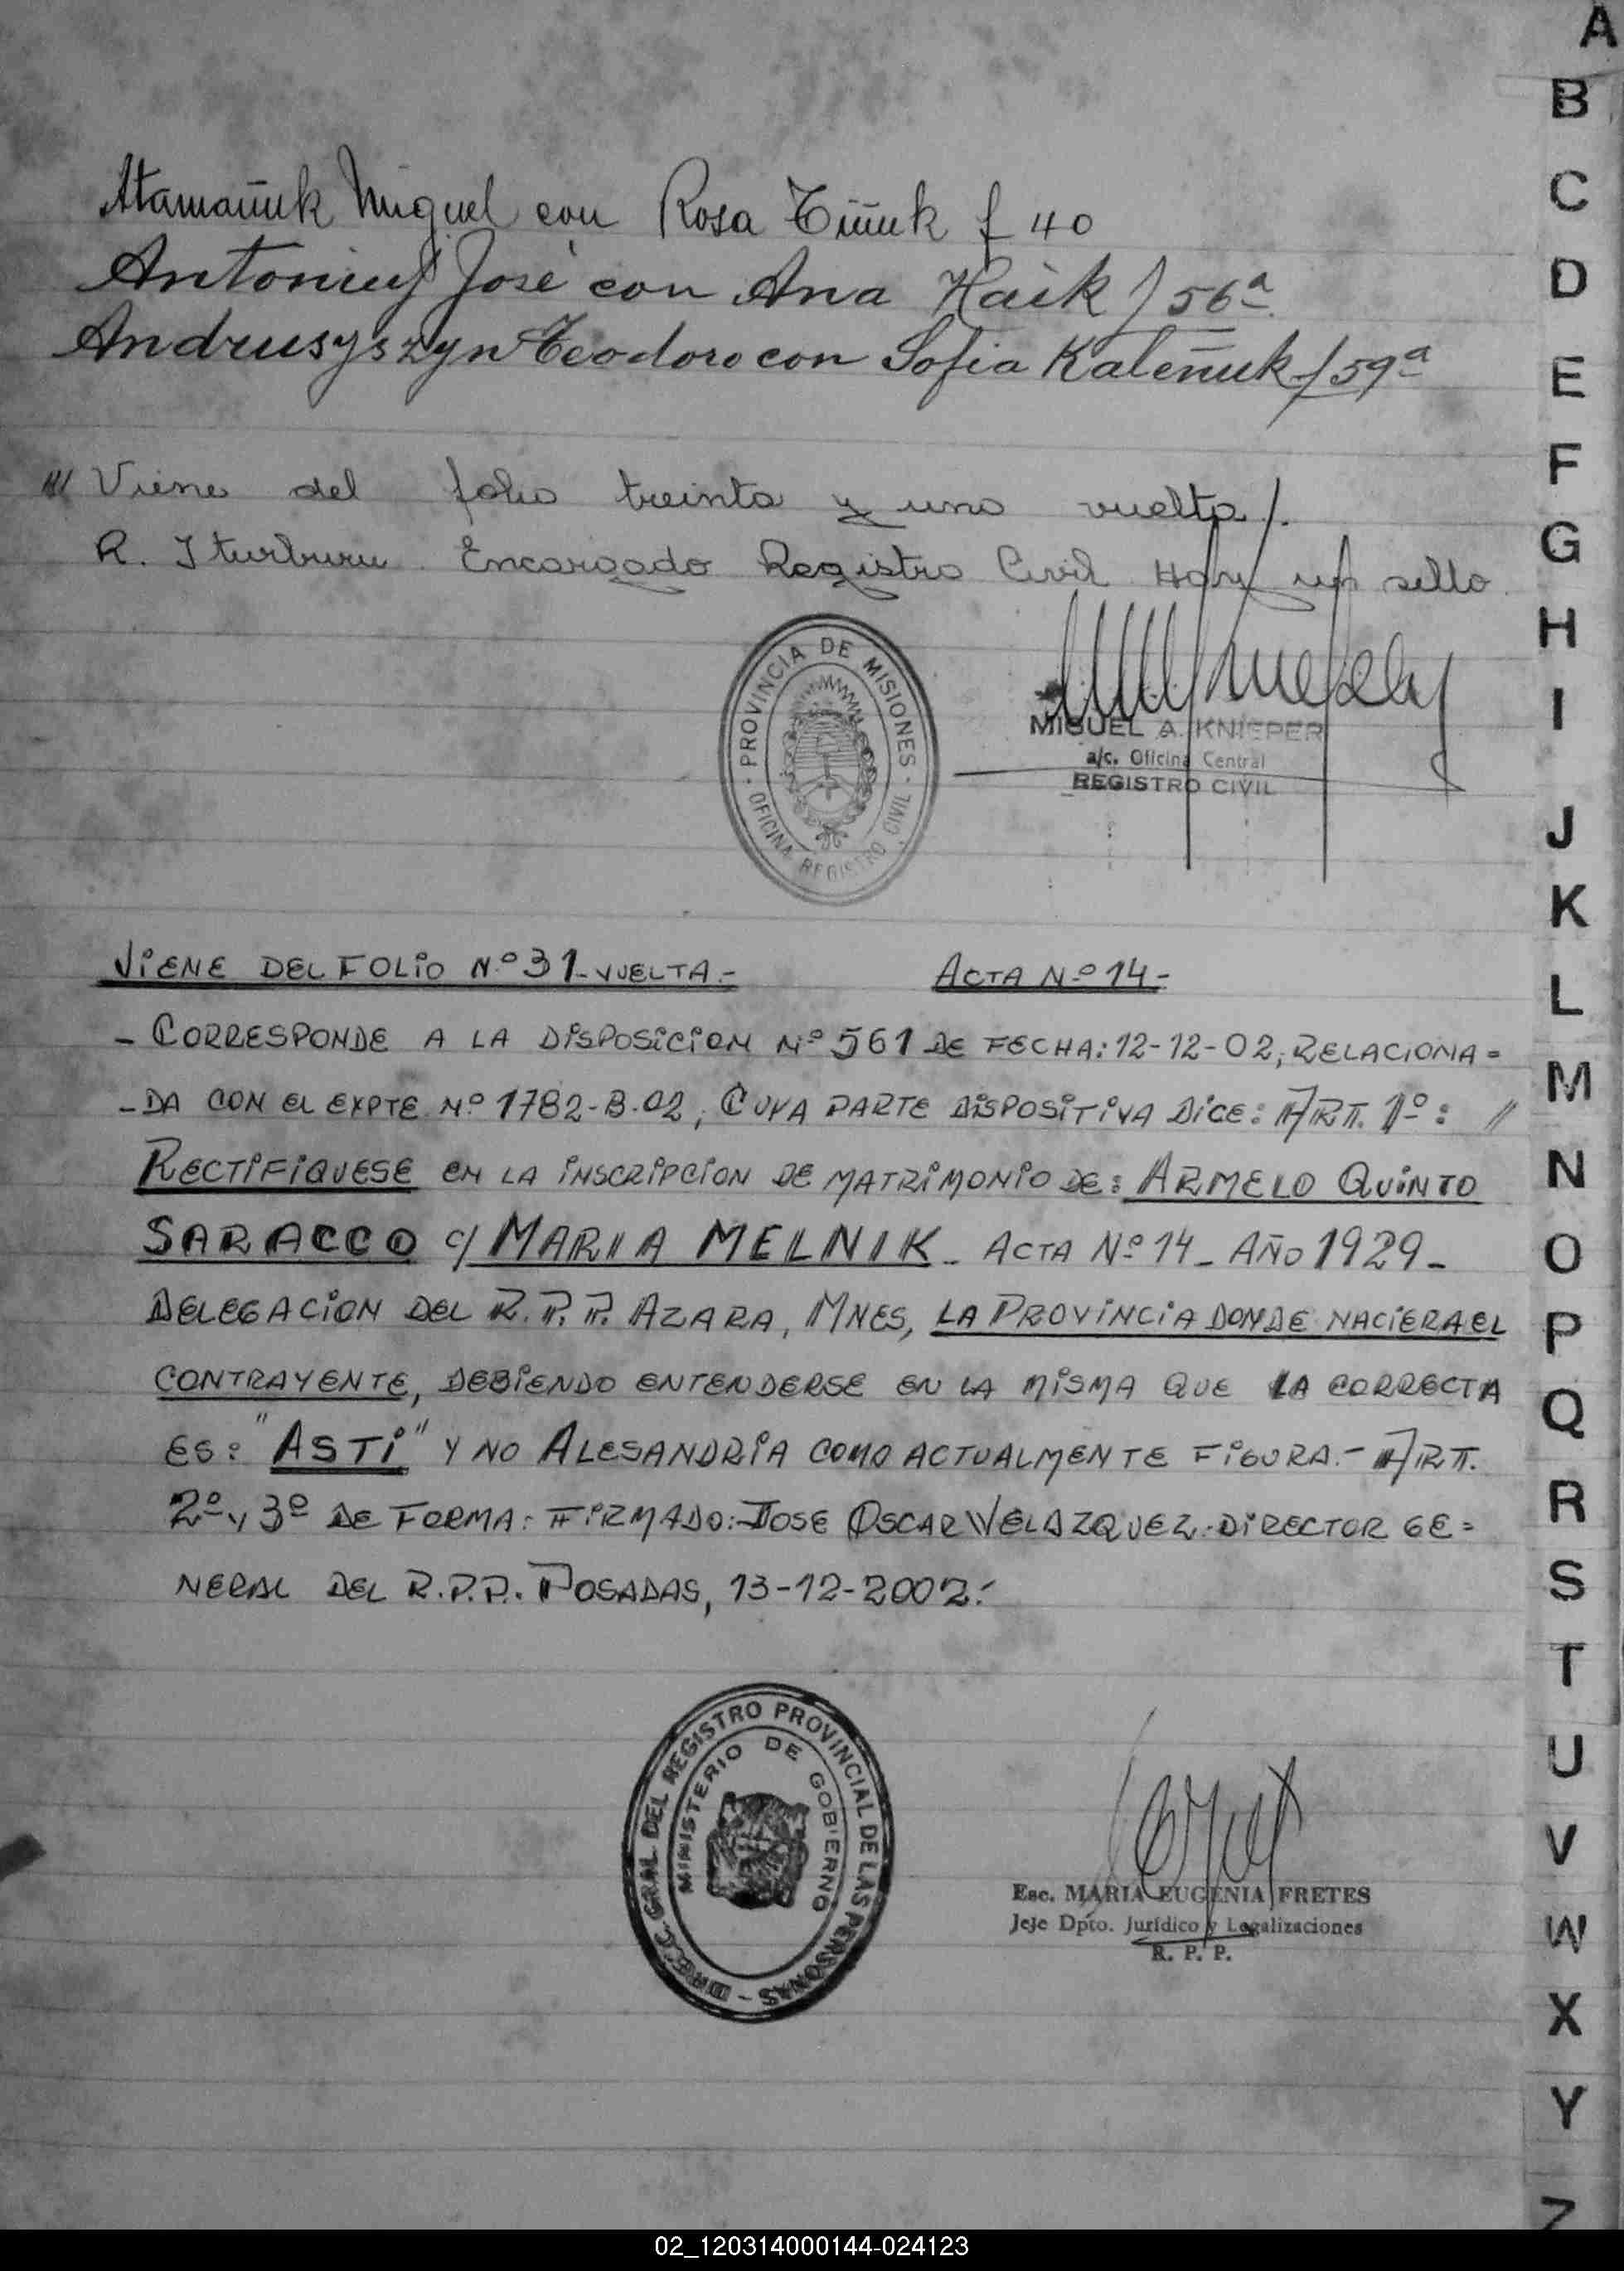 Atamañuk Miguel con Rosa Tiñuk f 40
Antoniuf José con Ana Haik f 56ª
Andrusyszyn Teodoro con Sofia Kaleñuk f 59ª
/// Viene del folio treinta y uno vuelta/.
R. Iturburu Encargado Registro Civil Hay un sello
PROVINCIA DE MISIONES
OFICINA REGISTRO CIVIL
MIGUEL A. KNIEPER
a/c. Oficina Central
REGISTRO CIVIL
VIENE DEL FOLIO Nº 31 - VUELTA.- ACTA Nº 14-
- CORRESPONDE A LA DISPOSICION Nº 561 DE FECHA: 12-12-02, RELACIONA=
-DA CON EL EXPTE. Nº 1782-B-02, CUYA PARTE DISPOSITIVA DICE: ART. 1º: //
RECTIFIQUESE EN LA INSCRIPCION DE MATRIMONIO DE: ARMELO QUINTO
SARACCO c/ MARIA MELNIK - ACTA Nº 14 - AÑO 1929 -
DELEGACION DEL R.P.P. AZARA, MNES, LA PROVINCIA DONDE NACIERA EL
CONTRAYENTE, DEBIENDO ENTENDERSE EN LA MISMA QUE LA CORRECTA
ES: "ASTI" Y NO ALESANDRIA COMO ACTUALMENTE FIGURA.- ART.
2º y 3º DE FORMA: FIRMADO: JOSE OSCAR VELAZQUEZ. DIRECTOR GE=
NERAL DEL R.P.P. POSADAS, 13-12-2002.-
DIRECC. GRAL. DEL REGISTRO PROVINCIAL DE LAS PERSONAS -
MINISTERIO DE GOBIERNO
Esc. MARIA EUGENIA FRETES
Jefe Dpto. Jurídico y Legalizaciones
R. P. P.
A
B
C
D
E
F
G
H
I
J
K
L
M
N
O
P
Q
R
S
T
U
V
W
X
Y
Z
02_120314000144-024123